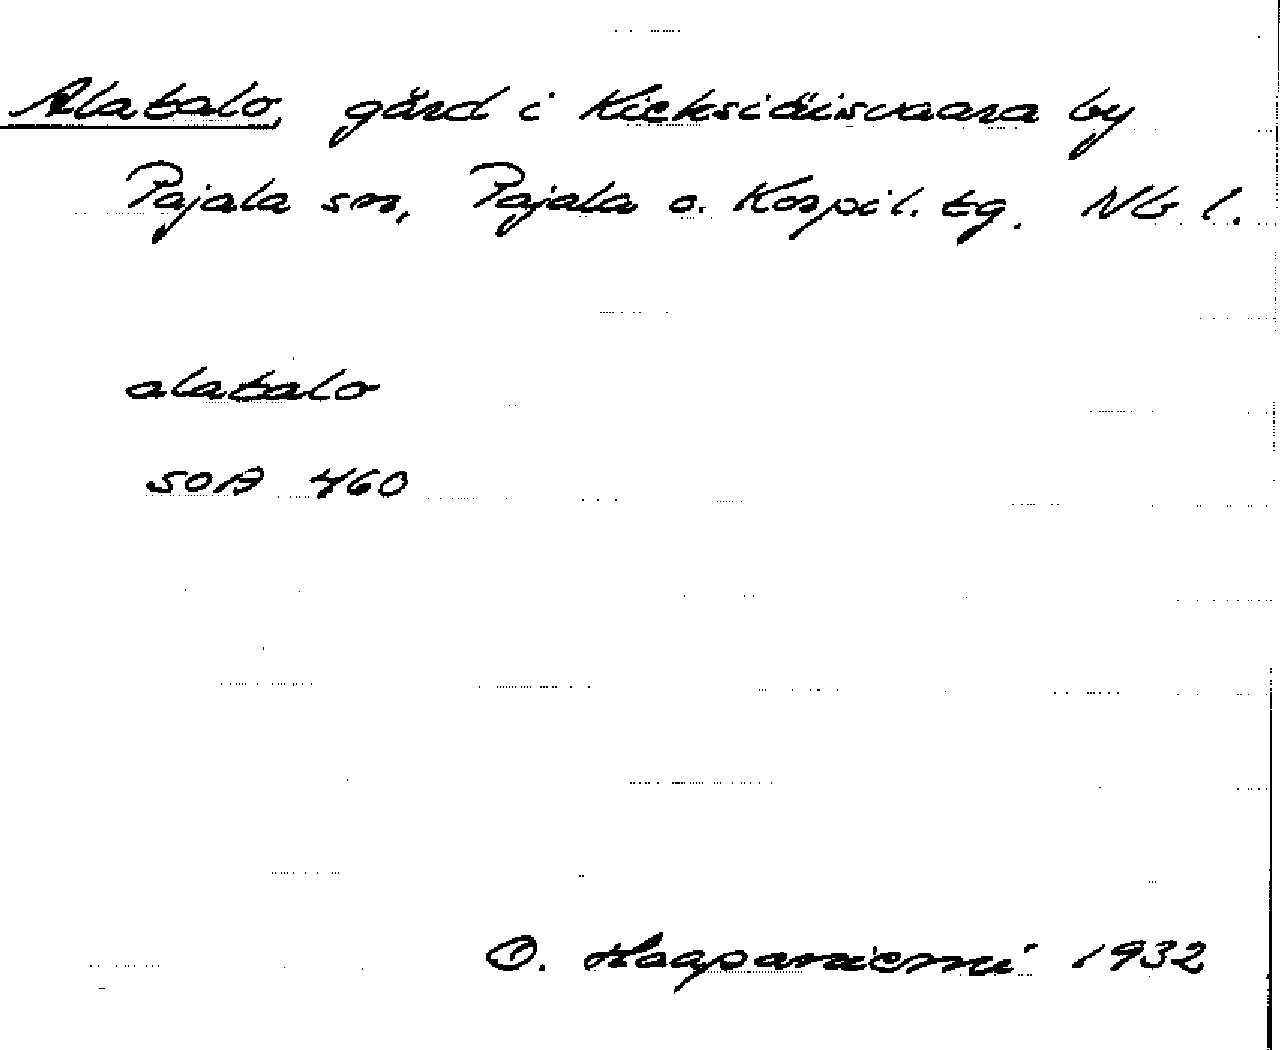 Alatalo, gård i Kieksiäisvaara by
Pajala sn, Pajala o. Korpil. tg. Nb l.
alatalo
SOA 460
O. Haapaniemi 1932